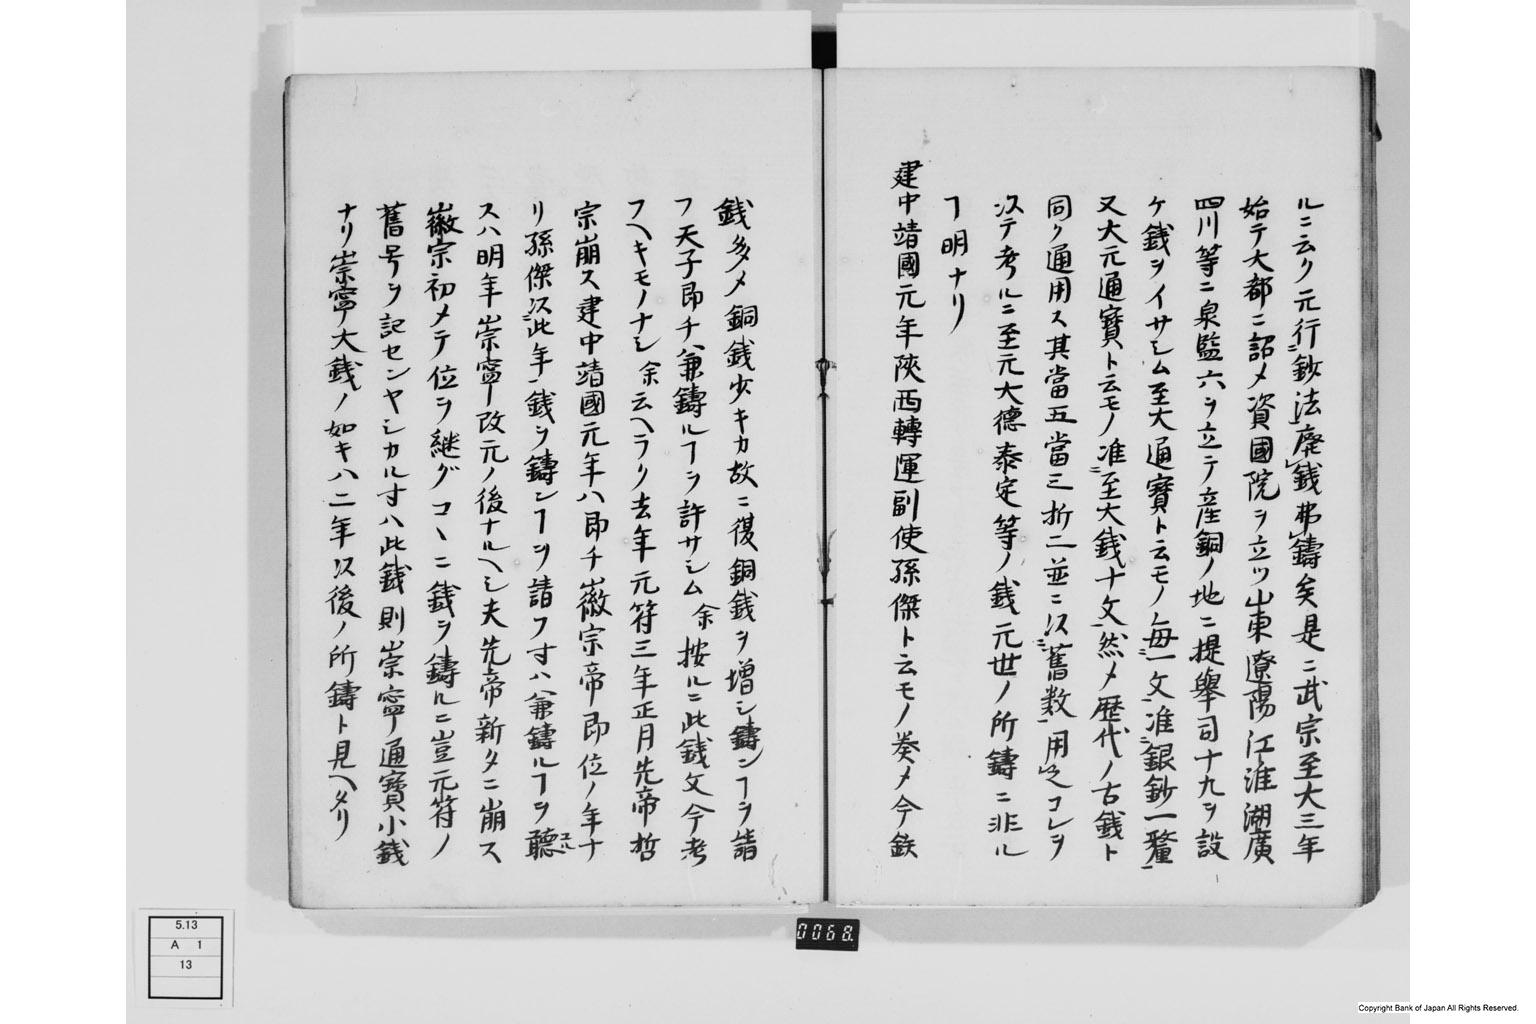 ルニ云ク元行鈔法廃銭弗鋳矣是ニ武宗至大三年
始テ大都ニ詔メ資國院ヲ立ツ山東遼陽江淮湖廣
四川等ニ泉監六ヲ立テ産銅ノ地ニ提舉司十九ヲ設
ケ銭ヲイサシム至大通寳ト云モノ毎一文准銀鈔一釐
又大元通寳ト云モノ准至大銭十文然メ歴代ノ古銭ト
同ク通用ス其當五當三折二並ニ以舊数用之コレヲ
次テ考ルニ至元大德泰定等ノ銭元世ノ所鑄ニ非ル
ヿ明ナリ
建中靖國元年陝西轉運副使孫傑ト云モノ奏メ今鉄
銭多メ銅銭少キカ故ニ復銅銭ヲ増シ鑄ンヿヲ請
フ天子即チ兼鑄ルヿヲ許サシム余按ルニ此銭文今考
フヘキモノナシ余云ヘラク去年元符三年正月先帝哲
宗崩ス建中靖國元年ハ即チ徽宗帝即位ノ年ナ
リ孫傑以此年銭ヲ鑄ンヿヲ請フ寸ハ兼鑄ルヿヲ聽
スル
スハ明年崇寧改元ノ後ナルヘシ夫先帝新タニ崩ス
徽宗初メテ位ヲ継グコヽニ銭ヲ鑄ルニ豈元符ノ
舊号ヲ記センヤシカル寸ハ此銭則崇寧通寳小銭
ナリ崇寧大銭ノ如キハ二年以後ノ所鑄ト見ヘタリ
0068.
5.13
A 1
13
Copyright Bank of Japan All Rights Reserved.